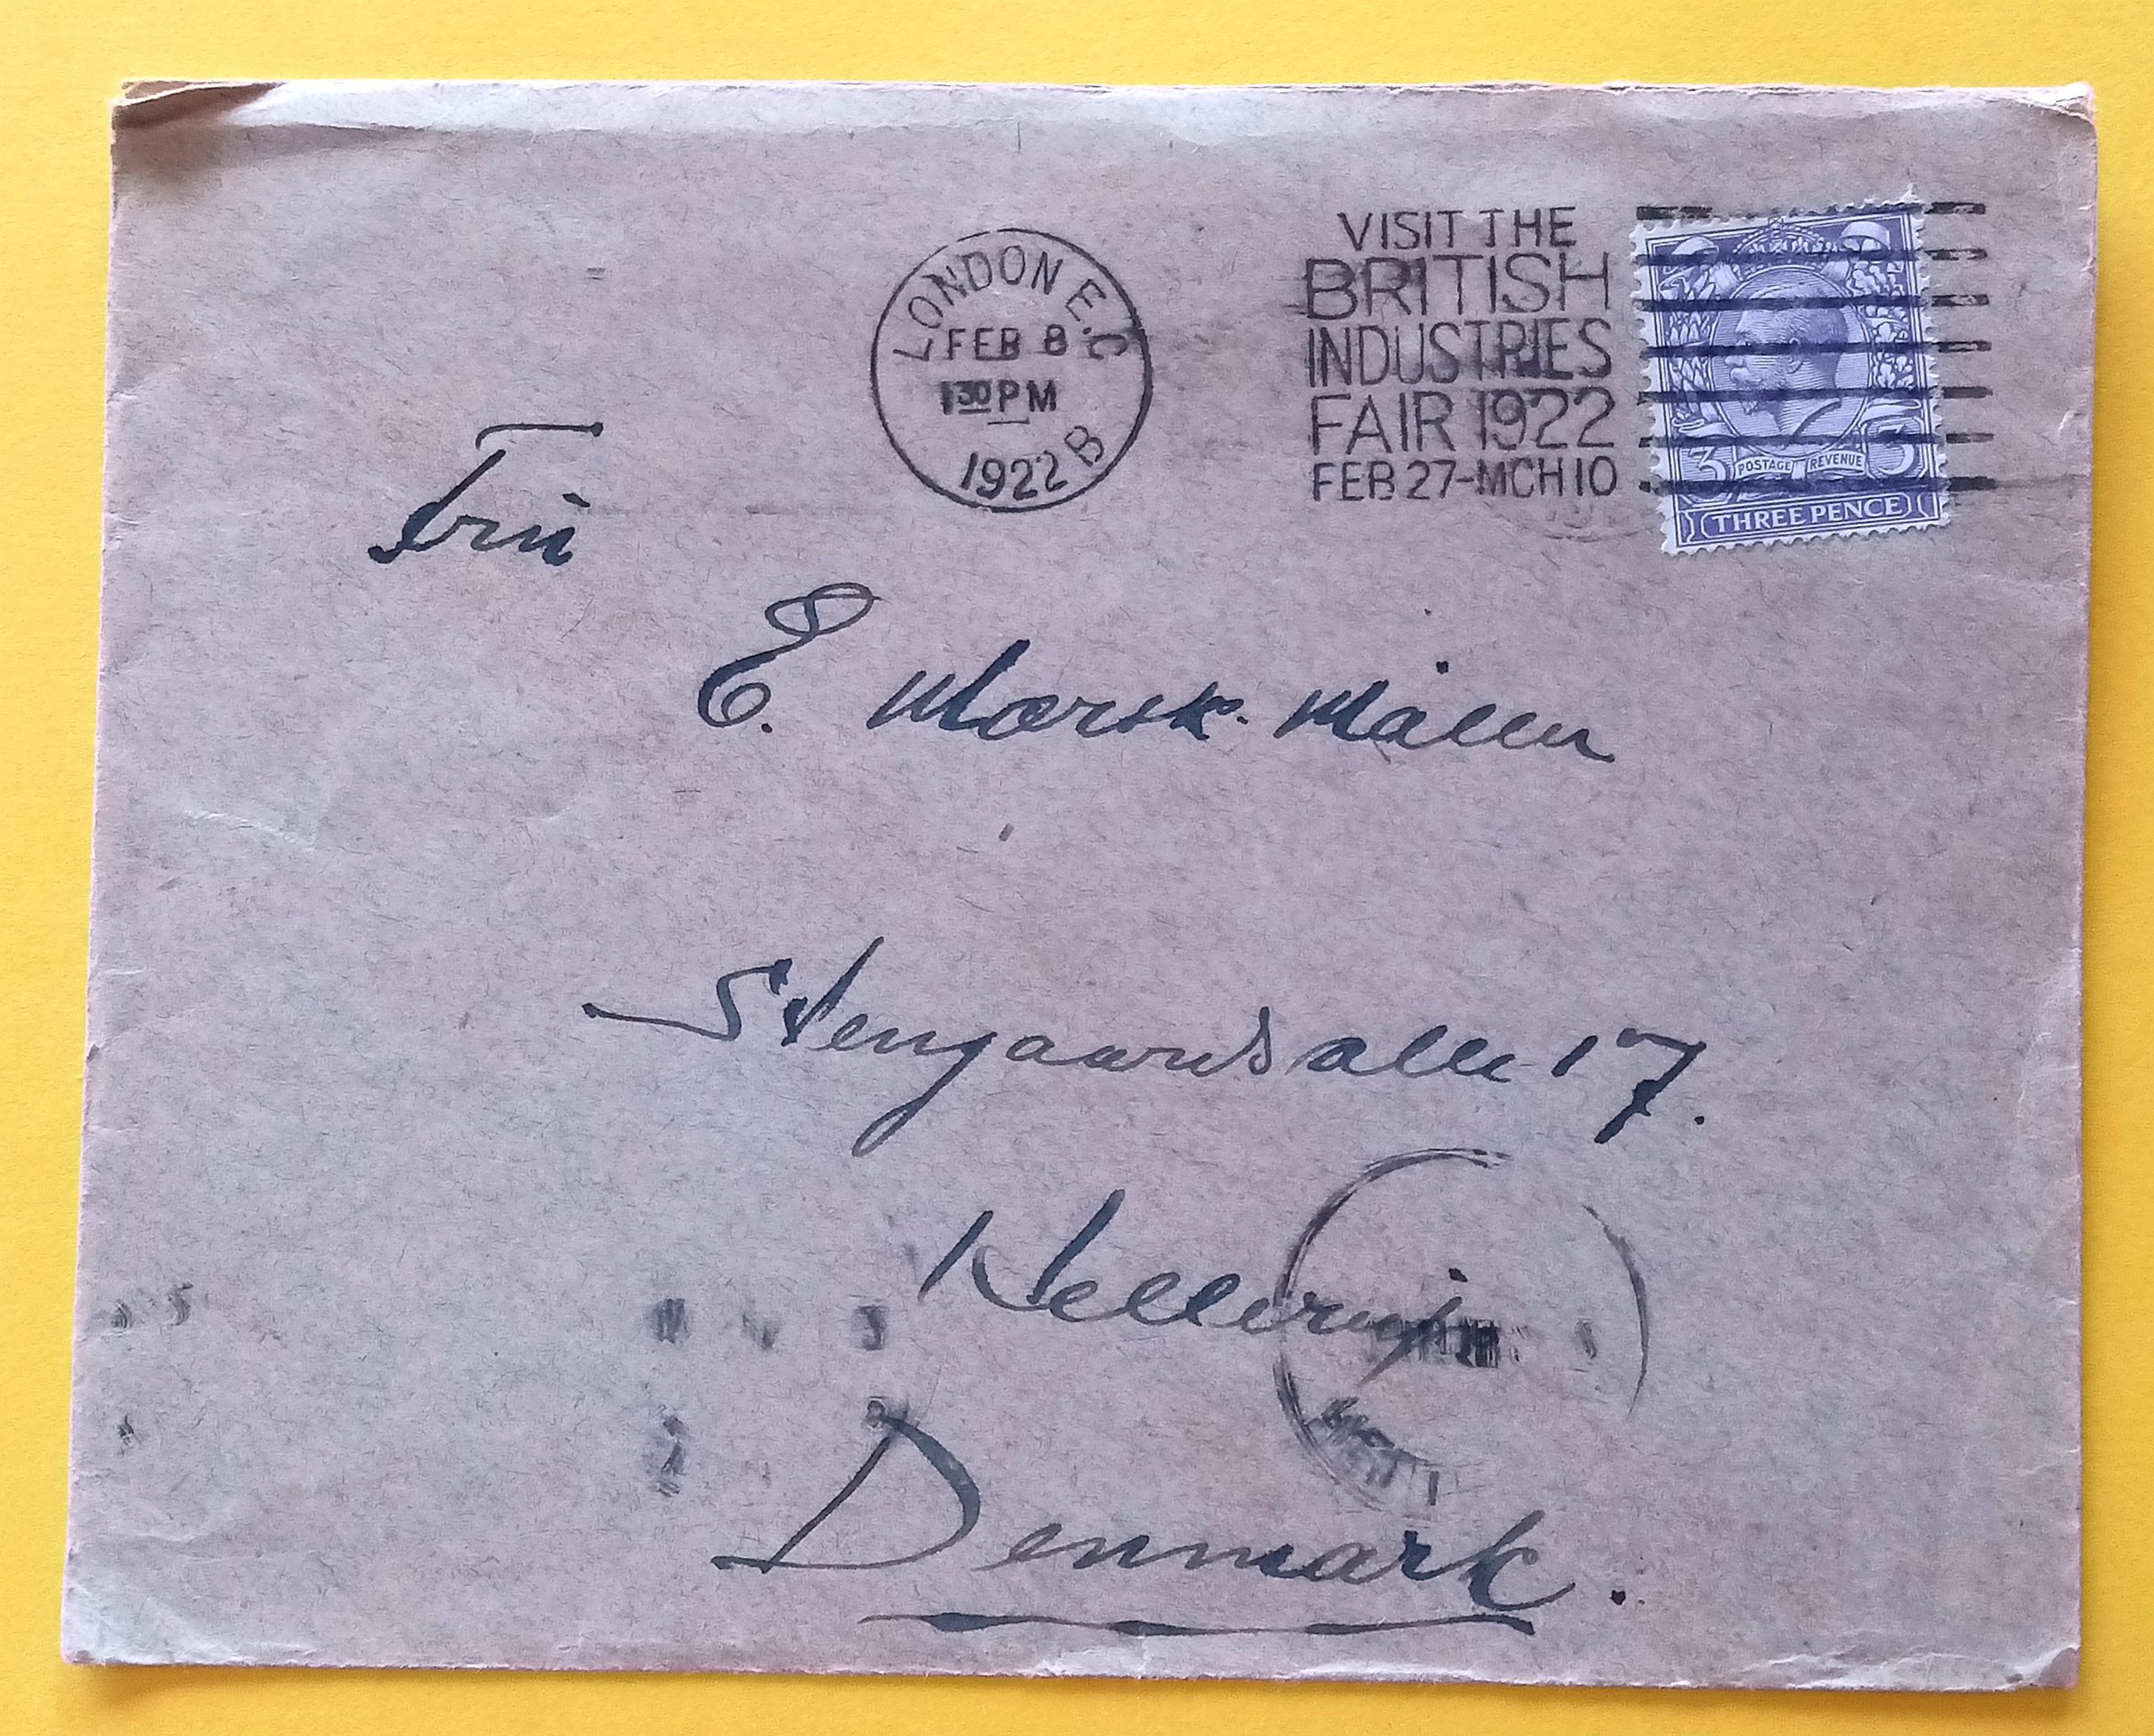 LONDON E.C
FEB 8
1 30 PM
1922 B
VISIT THE
BRITISH
INDUSTRIES
FAIR 1922
FEB 27-MCH 10
3 POSTAGE REVENUE 3
THREE PENCE
Frú
E. Mærsk-Møller
Stengaards alle 17.
Hellerup
Denmark.